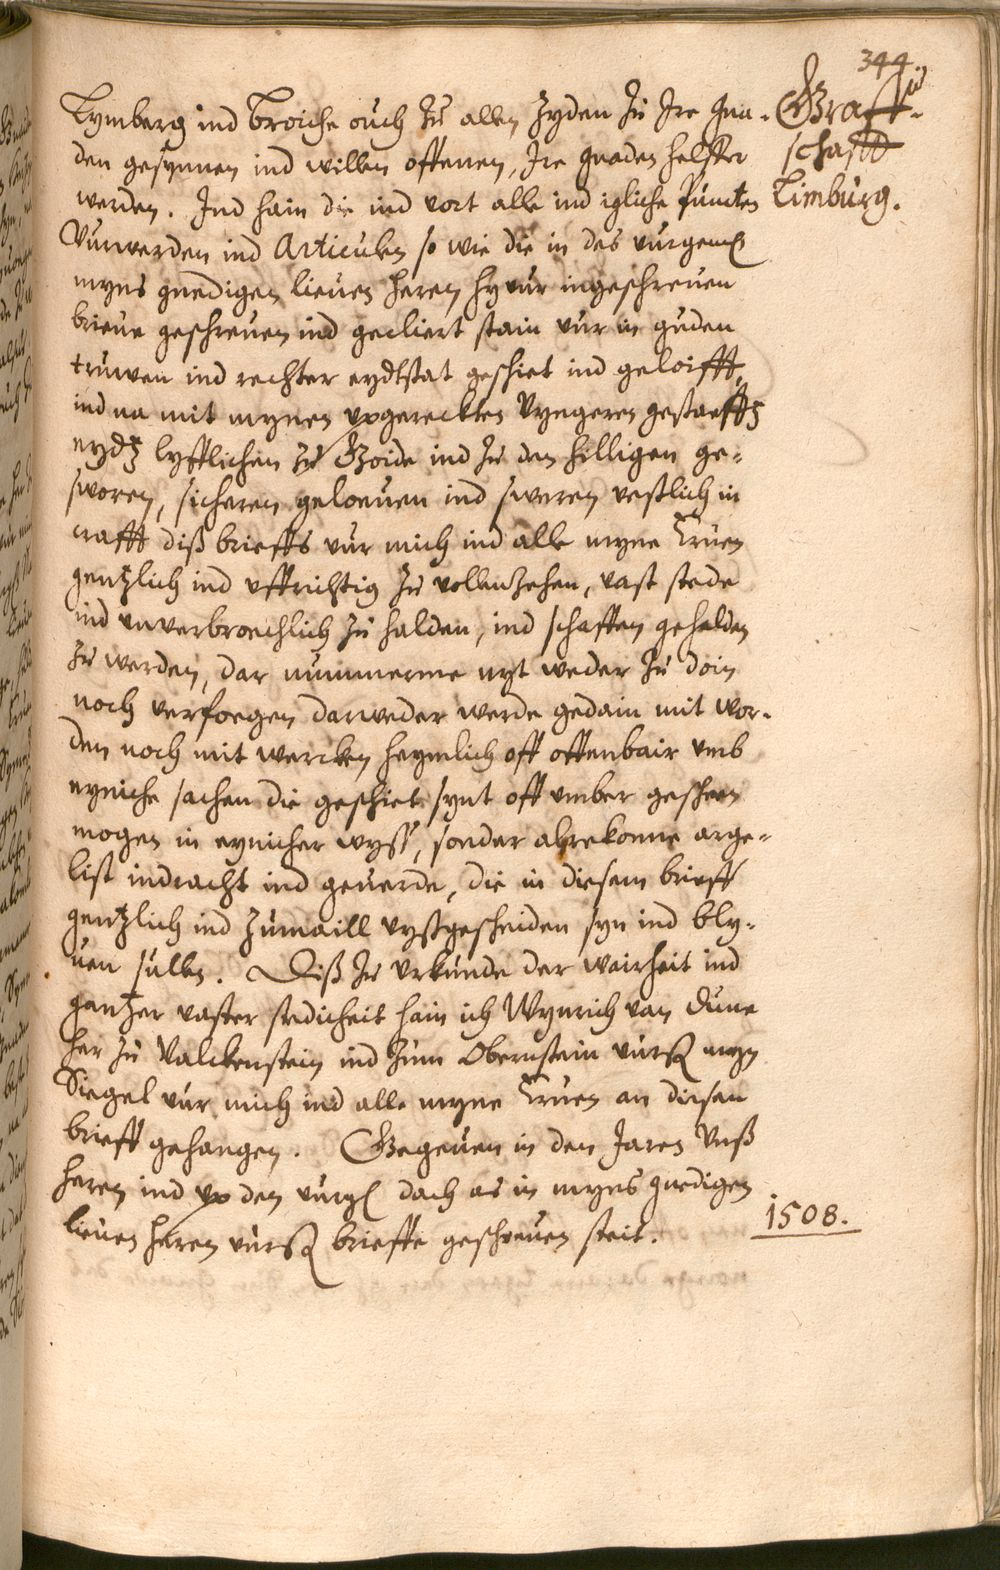 344.
Graff-
schafft
Limburg.
Lymberg ind Broiche ouch zu allen zyden zu Ire Gna-
den gesynnen ind willen offenen, Ire gnaden helffer
werden. Ind hain die ind vort alle ind igliche Puncten
Vurwerden ind Articulen so wie die in des vurgem
myns gnedigen lieuen heren hyvur ingeschreuen
brieue geschreuen ind gecliert stain vur in guden
truwen ind rechter eydtstat geschiet ind geloifft,
ind na mit mynen vpgereckten Vyngeren gestaeffts
eydtz lyfflichen zu Goide ind zu den hilligen ge-
sworen, sicheren geloeuen ind sweren vestlich in
crafft diß brieffs vur mich ind alle myne Eruen
gentzlich ind uffrichtig zu vollenzehen, vast stede
ind vnverbroechlich zu halden, ind schaffen gehalden
zu werden, dar nummerme nyt weder zu doin
noch verfoegen darweder werde gedain mit wor-
den noch mit wercken heymlich off offenbair vmb
eyniche sachen die geschiet synt off vmber geschein
mogen in eynicher wyß, sonder alrekonne arge-
list indracht ind geuerde, die in diesem brieff
gentzlich ind zumaill vyßgescheiden syn ind bly-
uen sullen. Diß zu vrkunde der wairheit ind
gantzer vaster stedicheit hain ich Wynrich van Dune
her zu Valckenstein ind zum Obernstein vurß myn
Siegel vur mich ind alle myne Eruen an diesen
brieff gehangen. Gegeuen in den Jaren Vnß
heren ind vp den vurg dach as in myns gnedigen
lieuen heren vurß brieffe geschreuen steit.
1508.